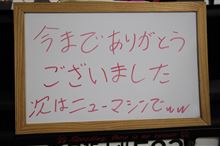 今までありがとう
ございました
次はニューマシンでww